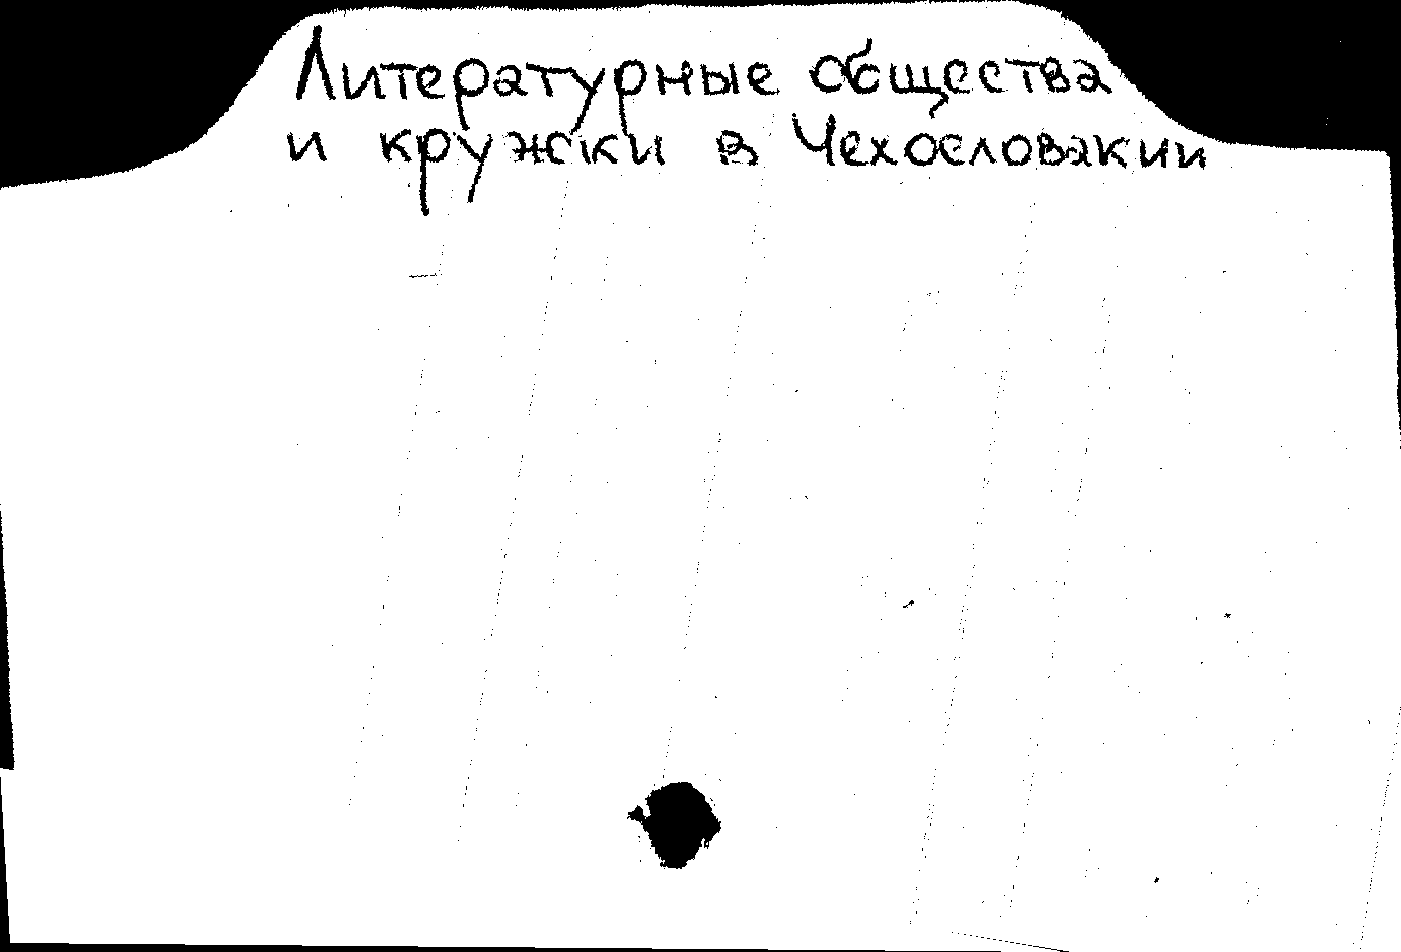 Литературные общества
и кружки в Чехословакии